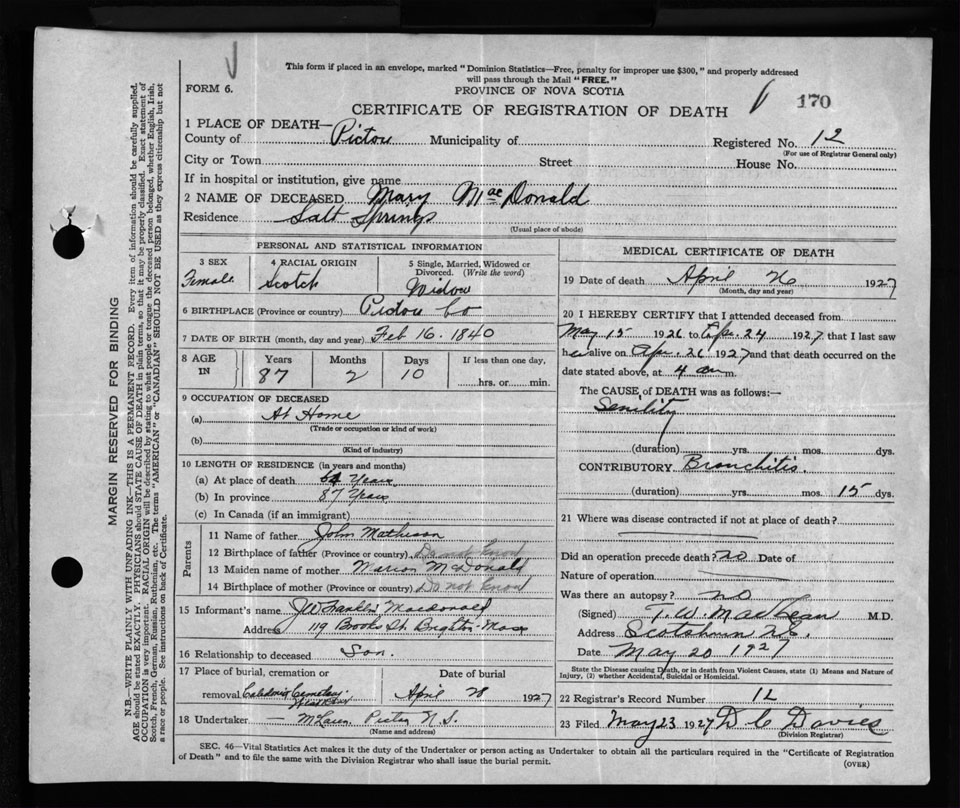 This form if placed in an envelope, marked "Dominion Statistics—Free, penalty for improper use $300," and properly addressed
will pass through the Mail "FREE."
FORM 6.
PROVINCE OF NOVA SCOTIA
CERTIFICATE OF REGISTRATION OF DEATH
170
1 PLACE OF DEATH—
County of Pictou Municipality of Registered No. 12
(For use of Registrar General only)
City or Town Street House No.
If in hospital or institution, give name
2 NAME OF DECEASED Mary MacDonald
Residence Salt Springs
(Usual place of abode)
PERSONAL AND STATISTICAL INFORMATION
3 SEX 4 RACIAL ORIGIN 5 Single, Married, Widowed or
Divorced. (Write the word)
Female Scotch Widow
6 BIRTHPLACE (Province or country) Pictou Co
7 DATE OF BIRTH (month, day and year) Feb 16. 1840
8 AGE IN Years Months Days If less than one day,
87 2 10 hrs. or min.
9 OCCUPATION OF DECEASED
(a) At Home
(Trade or occupation or kind of work)
(b)
(Kind of industry)
10 LENGTH OF RESIDENCE (in years and months)
(a) At place of death 64 Years
(b) In province 87 Years
(c) In Canada (if an immigrant)
Parents
11 Name of father John Matheson
12 Birthplace of father (Province or country) Do not know
13 Maiden name of mother Marion McDonald
14 Birthplace of mother (Province or country) Do not know
15 Informant's name J W Franklin Macdonald
Address 119 St. Brighton Mass
16 Relationship to deceased Son.
17 Place of burial, cremation or Date of burial
removal Caledonia Cemetery April 28 1927
18 Undertaker — McLaren Pictou N.S.
(Name and address)
MEDICAL CERTIFICATE OF DEATH
19 Date of death April 26 1927
(Month, day and year)
20 I HEREBY CERTIFY that I attended deceased from
May 15 1926 to Apr. 24 1927 that I last saw
her alive on Apr. 26 1927 and that death occurred on the
date stated above, at 4 am m.
The CAUSE OF DEATH was as follows:—
Senility
(duration) yrs. mos. dys.
CONTRIBUTORY Bronchitis.
(duration) yrs. mos. 15 dys.
21 Where was disease contracted if not at place of death?
Did an operation precede death? no Date of
Nature of operation
Was there an autopsy? no
(Signed) T. W. MacLean M.D.
Address Scotsburn N.S.
Date May 20 1927
State the Disease causing Death, or in death from Violent Causes, state (1) Means and Nature of
Injury, (2) whether Accidental, Suicidal or Homicidal.
22 Registrar's Record Number 12
23 Filed May 23 1927 D C Davies
(Division Registrar)
SEC. 46—Vital Statistics Act makes it the duty of the Undertaker or person acting as Undertaker to obtain all the particulars required in the "Certificate of Registration
of Death" and to file the same with the Division Registrar who shall issue the burial permit.
(OVER)
MARGIN RESERVED FOR BINDING
N.B.—WRITE PLAINLY WITH UNFADING INK—THIS IS A PERMANENT RECORD. Every item of information should be carefully supplied.
AGE should be stated EXACTLY. PHYSICIANS should STATE CAUSE OF DEATH in plain terms, so that it may be properly classified. Exact statement of
OCCUPATION is very important. RACIAL ORIGIN will be described by stating to what people or tongue the deceased person belonged, whether English, Irish,
Scotch, French, German, Russian, Ruthenian, etc. The terms "AMERICAN" or "CANADIAN" SHOULD NOT BE USED as they express citizenship but not
a race or people. See instructions on back of Certificate.